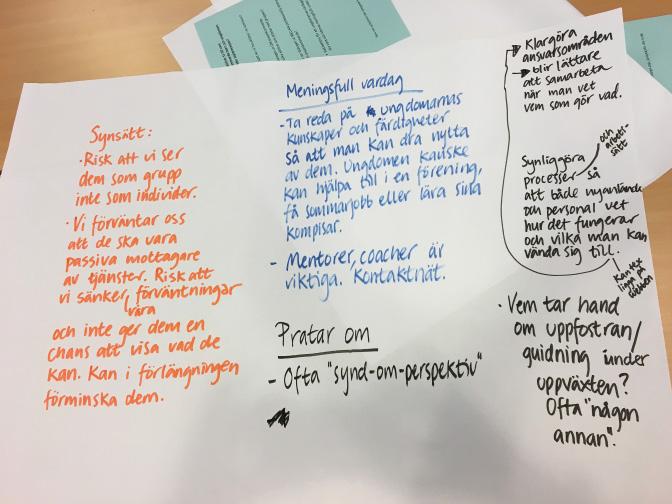 Synsätt:
· Risk att vi ser
dem som grupp
inte som individer.
· Vi förväntar oss
att de ska vara
passiva mottagare
av tjänster. Risk att
vi sänker våra förväntningar
och inte ger dem en
chans att visa vad de
kan. Kan i förlängningen
förminska dem.
Meningsfull vardag
- Ta reda på ungdomarnas
kunskaper och färdigheter
så att man kan dra nytta
av dem. Ungdomen kanske
kan hjälpa till i en förening,
få sommarjobb eller lära sina
kompisar.
- Mentorer, coacher är
viktiga. Kontaktnät.
Pratar om
- Ofta "synd-om-perspektiv"
Klargöra
ansvarsområden
blir lättare
att samarbeta
när man vet
vem som gör vad.
och arbets-
sätt
Synliggöra
processer så
att både nyanlända
och personal vet
hur det fungerar
och vilka man kan
vända sig till.
Kan tex
ligga på
webben
· Vem tar hand
om uppfostran/
guidning under
uppväxten?
Ofta "någon
annan".